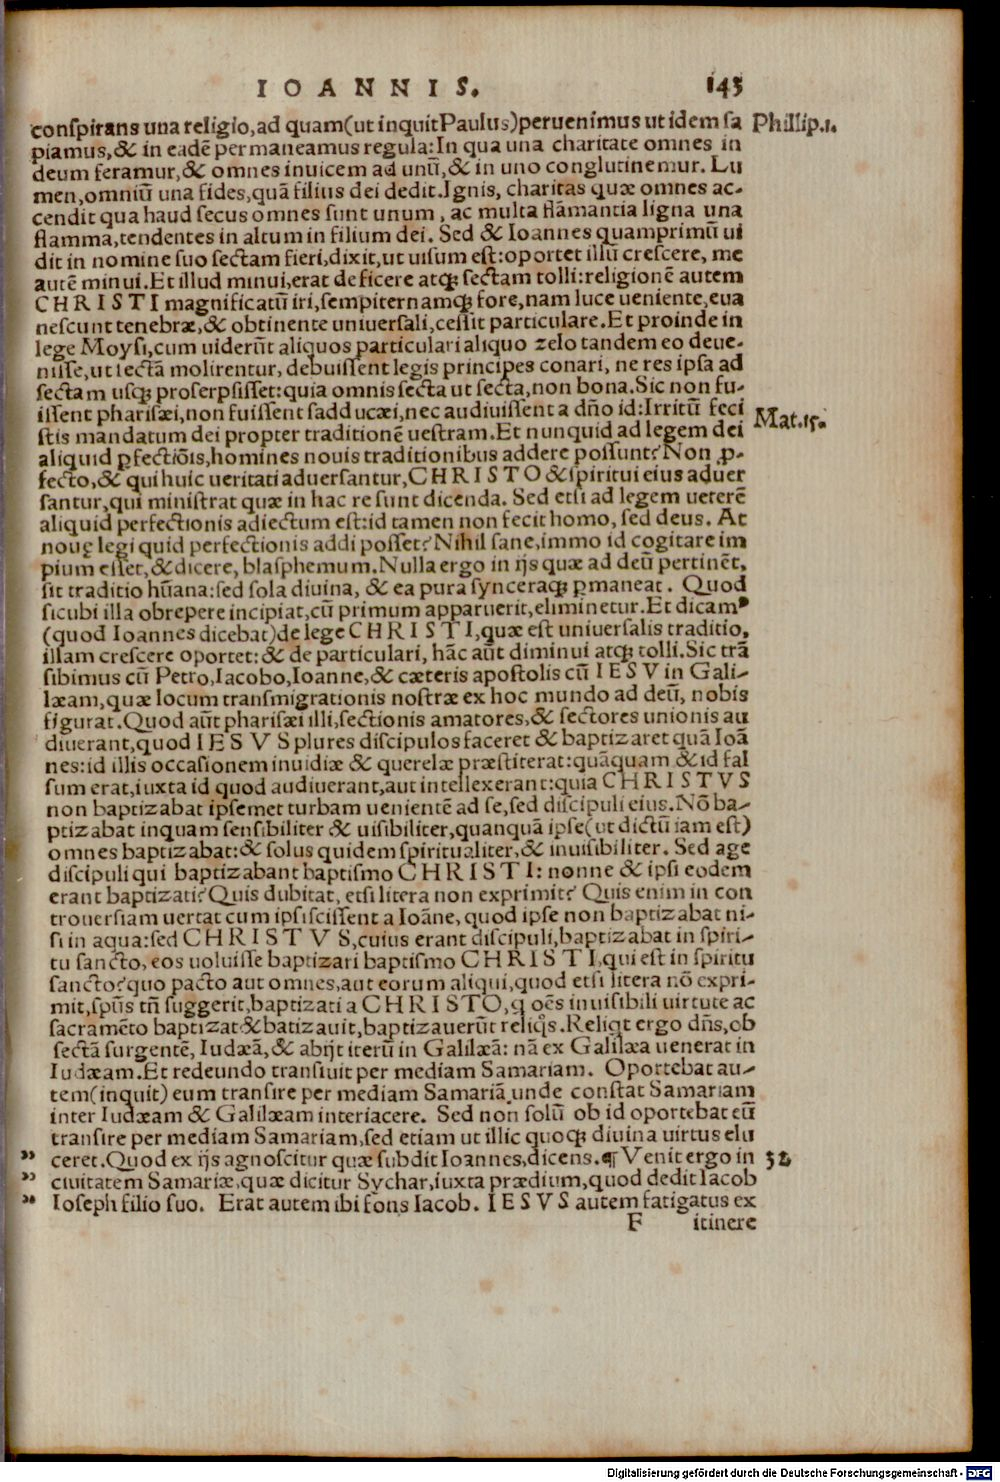 IOANNIS. 143
conspirans una religio, ad quam (ut inquit Paulus) peruenimus ut idem sa Phillip.1.
piamus, & in eadē permaneamus regula: In qua una charitate omnes in
deum feramur, & omnes inuicem ad unū, & in uno conglutinemur. Lu
men, omniū una fides, quā filius dei dedit. Ignis, charitas quæ omnes ac-
cendit qua haud secus omnes sunt unum, ac multa flāmantia ligna una
flamma, tendentes in altum in filium dei. Sed & Ioannes quamprimū ui
dit in nomine suo sectam fieri, dixit, ut uisum est: oportet illū crescere, me
autē minui. Et illud minui, erat deficere atq; sectam tolli: religionē autem
CHRISTI magnificatū iri, sempiternamq; fore, nam luce ueniente, eua
nescunt tenebræ, & obtinente uniuersali, cessit particulare. Et proinde in
lege Moysi, cum uiderūt aliquos particulari aliquo zelo tandem eo deue-
nisse, ut sectā molirentur, debuissent legis principes conari, ne res ipsa ad
sectam usq; proserpsisset: quia omnis secta ut secta, non bona. Sic non fu-
issent pharisæi, non fuissent sadducæi, nec audiuissent a dño id: Irritū feci
stis mandatum dei propter traditionē uestram. Et nunquid ad legem dei Mat.15.
aliquid ꝑfectiōis, homines nouis traditionibus addere possunt? Non ꝓ-
fecto, & qui huic ueritati aduersantur, CHRISTO & spiritui eius aduer
santur, qui ministrat quæ in hac re sunt dicenda. Sed etsi ad legem ueterē
aliquid perfectionis adiectum est: id tamen non fecit homo, sed deus. At
nouę legi quid perfectionis addi posset? Nihil sane, immo id cogitare im
pium esset, & dicere, blasphemum. Nulla ergo in ijs quæ ad deū pertinēt,
sit traditio hūana: sed sola diuina, & ea pura synceraq; ꝑmaneat. Quod
sicubi illa obrepere incipiat, cū primum apparuerit, eliminetur. Et dicamꝰ
(quod Ioannes dicebat) de lege CHRISTI, quæ est uniuersalis traditio,
illam crescere oportet: & de particulari, hāc aūt diminui atq; tolli. Sic trā
sibimus cū Petro, Iacobo, Ioanne, & cæteris apostolis cū IESV in Gali-
læam, quæ locum transmigrationis nostræ ex hoc mundo ad deū, nobis
figurat. Quod aūt pharisæi illi, sectionis amatores, & sectores unionis au
diuerant, quod IESVS plures discipulos faceret & baptizaret quā Ioā
nes: id illis occasionem inuidiæ & querelæ præstiterat: quāquam & id fal
sum erat, iuxta id quod audiuerant, aut intellexerant: quia CHRISTVS
non baptizabat ipsemet turbam uenientē ad se, sed discipuli eius. Nō ba-
ptizabat inquam sensibiliter & uisibiliter, quanquā ipse (ut dictū iam est)
omnes baptizabat: & solus quidem spiritualiter, & inuisibiliter. Sed age
discipuli qui baptizabant baptismo CHRISTI: nonne & ipsi eodem
erant baptizati? Quis dubitat, etsi litera non exprimit? Quis enim in con
trouersiam uertat cum ipsi scissent a Ioāne, quod ipse non baptizabat ni-
si in aqua: sed CHRISTVS, cuius erant discipuli, baptizabat in spiri-
tu sancto, eos uoluisse baptizari baptismo CHRISTI, qui est in spiritu
sancto? quo pacto aut omnes, aut eorum aliqui, quod etsi litera nō expri-
mit, spūs tñ suggerit, baptizati a CHRISTO, q oēs inuisibili uirtute ac
sacramēto baptizat & batizauit, baptizauerūt reliq̄s. Reliqt ergo dñs, ob
sectā surgentē, Iudæā, & abijt iterū in Galilæā: nā ex Galilæa uenerat in
Iudæam. Et redeundo transiuit per mediam Samariam. Oportebat au-
tem (inquit) eum transire per mediam Samariā, unde constat Samariam
inter Iudæam & Galilæam interiacere. Sed non solū ob id oportebat eū
transire per mediam Samariam, sed etiam ut illic quoq; diuina uirtus elu
„ ceret. Quod ex ijs agnoscitur quæ subdit Ioannes, dicens. ¶ Venit ergo in 32
„ ciuitatem Samariæ, quæ dicitur Sychar, iuxta prædium, quod dedit Iacob
„ Ioseph filio suo. Erat autem ibi fons Iacob. IESVS autem fatigatus ex
F itinere
Digitalisierung gefördert durch die Deutsche Forschungsgemeinschaft - DFG